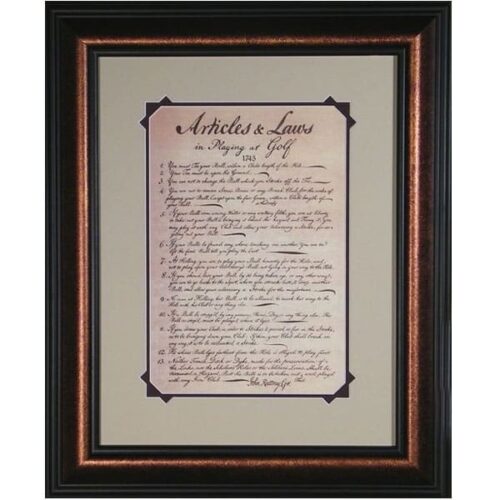 Articles & Laws
in Playing at Golf
1745
1. You must Tee your Ball, within a Club's length of the Hole.
2. Your Tee must be upon the Ground.
3. You are not to change the Ball which you Stroke off the Tee.
4. You are not to remove Stones, Bones or any Break Club, for the sake of
playing your Ball, Except upon the fair Green, within a Club's length of
your Ball.
5. If your Ball come among Water or any watery filth, you are at liberty
to take out your Ball & bringing it behind the hazard, and Teeing it, you
may play it with any Club and allow your Adversary a Stroke, for so
getting out your Ball.
6. If your Balls be found any where touching one another, You are to
lift the first Ball, till you play the last.
7. At Holling, you are to play your Ball honestly for the Hole, and
not to play upon your Adversary's Ball, not lying in your way to the Hole.
8. If you should lose your Ball, by its being taken up, or any other way,
you are to go back to the Spot, where you struck last, & drop another
Ball, and allow your adversary a Stroke for the misfortune.
9. No man at Holling his Ball, is to be allowed, to mark his way to the
Hole with his Club or any thing else.
10. If a Ball be stopp'd by any person, Horse, Dog or any thing else, The
Ball so stop'd must be played where it lyes.
11. If you draw your Club, in order to Stroke & proceed so far in the Stroke,
as to be bringing down your Club; If then, your Club shall break, in
any way, it is to be accounted a Stroke.
12. He whose Ball lyes farthest from the Hole is obliged to play first.
13. Neither Trench, Ditch or Dyke, made for the preservation of
the Links, nor the Scholar's Holes or the Soldier's Lines, Shall be
accounted a Hazard, But the Ball is to be taken out &
with any Iron Club.
John Rattray, Cpt